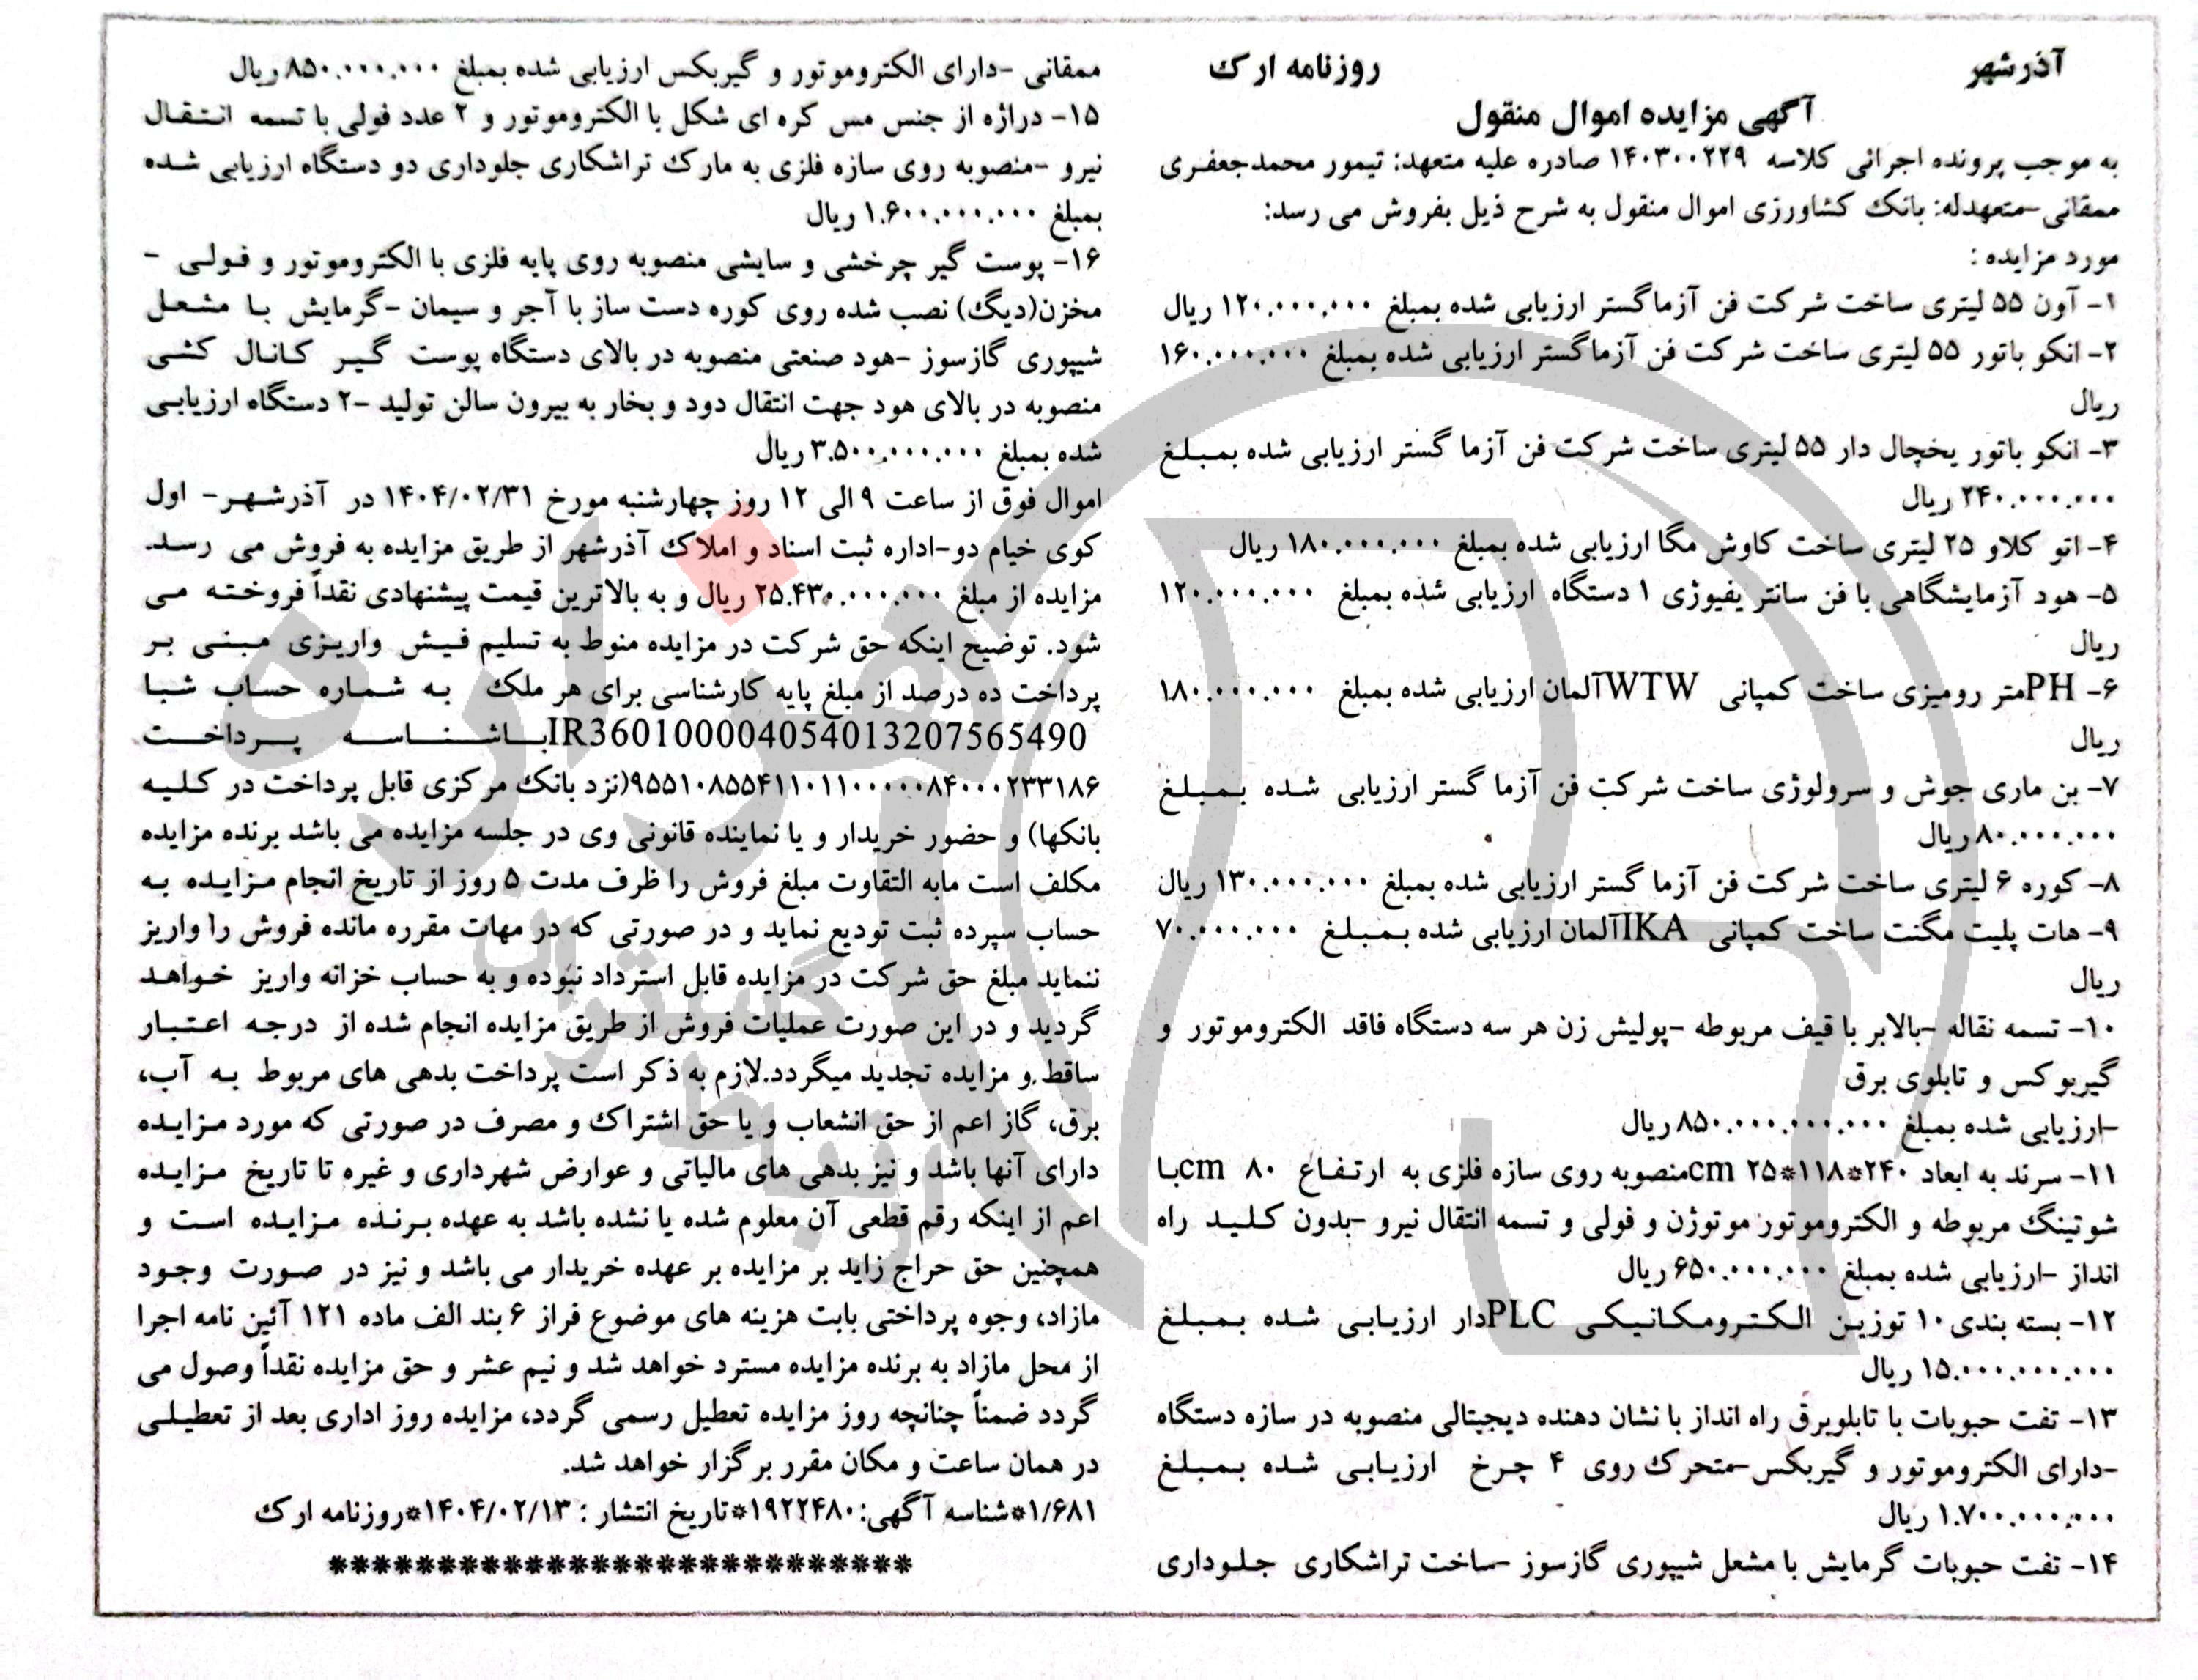 آذرشهر
روزنامه ارک
آگهی مزایده اموال منقول
به موجب پرونده اجرائی کلاسه ۱۴۰۳۰۰۲۲۹ صادره علیه متعهد: تیمور محمدجعفری
ممقانی-متعهدله: بانک کشاورزی اموال منقول به شرح ذیل بفروش می رسد:
مورد مزایده :
۱- آون ۵۵ لیتری ساخت شرکت فن آزماگستر ارزیابی شده بمبلغ ۱۲۰.۰۰۰.۰۰۰ ریال
۲- انکو باتور ۵۵ لیتری ساخت شرکت فن آزماگستر ارزیابی شده بمبلغ ۱۶۰.۰۰۰.۰۰۰
ریال
۳- انکو باتور یخچال دار ۵۵ لیتری ساخت شرکت فن آزما گستر ارزیابی شده بمبلغ
۲۴۰.۰۰۰.۰۰۰ ریال
۴- اتو کلاو ۲۵ لیتری ساخت کاوش مگا ارزیابی شده بمبلغ ۱۸۰.۰۰۰.۰۰۰ ریال
۵- هود آزمایشگاهی با فن سانتر یفیوژی ۱ دستگاه ارزیابی شده بمبلغ ۱۲۰.۰۰۰.۰۰۰
ریال
۶- PHمتر رومیزی ساخت کمپانی WTWآلمان ارزیابی شده بمبلغ ۱۸۰.۰۰۰.۰۰۰
ریال
۷- بن ماری جوش و سرولوژی ساخت شرکت فن آزما گستر ارزیابی شده بمبلغ
۸۰.۰۰۰.۰۰۰ ریال
۸- کوره ۶ لیتری ساخت شرکت فن آزما گستر ارزیابی شده بمبلغ ۱۳۰.۰۰۰.۰۰۰ ریال
۹- هات پلیت مگنت ساخت کمپانی IKAآلمان ارزیابی شده بمبلغ ۷۰.۰۰۰.۰۰۰
ریال
۱۰- تسمه نقاله -بالابر با قیف مربوطه -پولیش زن هر سه دستگاه فاقد الکتروموتور و
گیربوکس و تابلوی برق
-ارزیابی شده بمبلغ ۸۵۰.۰۰۰.۰۰۰.۰۰۰ ریال
۱۱- سرند به ابعاد ۲۴۰*۱۱۸*۲۵ cmمنصوبه روی سازه فلزی به ارتفاع ۸۰ cmبا
شوتینگ مربوطه و الکتروموتور موتوژن و فولی و تسمه انتقال نیرو -بدون کلید راه
انداز -ارزیابی شده بمبلغ ۶۵۰.۰۰۰.۰۰۰ ریال
۱۲- بسته بندی ۱۰ توزین الکترومکانیکی PLCدار ارزیابی شده بمبلغ
۱۵.۰۰۰.۰۰۰.۰۰۰ ریال
۱۳- تفت حبوبات با تابلوبرق راه انداز با نشان دهنده دیجیتالی منصوبه در سازه دستگاه
-دارای الکتروموتور و گیربکس-متحرک روی ۴ چرخ ارزیابی شده بمبلغ
۱.۷۰۰.۰۰۰.۰۰۰ ریال
۱۴- تفت حبوبات گرمایش با مشعل شیپوری گازسوز -ساخت تراشکاری جلوداری
ممقانی -دارای الکتروموتور و گیربکس ارزیابی شده بمبلغ ۸۵۰.۰۰۰.۰۰۰ ریال
۱۵- دراژه از جنس مس کره ای شکل با الکتروموتور و ۲ عدد فولی با تسمه انتقال
نیرو -منصوبه روی سازه فلزی به مارک تراشکاری جلوداری دو دستگاه ارزیابی شده
بمبلغ ۱.۶۰۰.۰۰۰.۰۰۰ ریال
۱۶- پوست گیر چرخشی و سایشی منصوبه روی پایه فلزی با الکتروموتور و فولی -
مخزن(دیگ) نصب شده روی کوره دست ساز با آجر و سیمان -گرمایش با مشعل
شیپوری گازسوز -هود صنعتی منصوبه در بالای دستگاه پوست گیر کانال کشی
منصوبه در بالای هود جهت انتقال دود و بخار به بیرون سالن تولید -۲ دستگاه ارزیابی
شده بمبلغ ۳.۵۰۰.۰۰۰.۰۰۰ ریال
اموال فوق از ساعت ۹ الی ۱۲ روز چهارشنبه مورخ ۱۴۰۴/۰۲/۳۱ در آذرشهر- اول
کوی خیام دو-اداره ثبت اسناد و املاک آذرشهر از طریق مزایده به فروش می رسد.
مزایده از مبلغ ۲۵.۴۳۰.۰۰۰.۰۰۰ ریال و به بالاترین قیمت پیشنهادی نقداً فروخته می
شود. توضیح اینکه حق شرکت در مزایده منوط به تسلیم فیش واریزی مبنی بر
پرداخت ده درصد از مبلغ پایه کارشناسی برای هر ملک به شماره حساب شبا
IR360100004054013207565490باشناسه پرداخت
۹۵۵۱۰۸۵۵۴۱۱۰۱۱۰۰۰۰۰۸۴۰۰۰۲۳۳۱۸۶(نزد بانک مرکزی قابل پرداخت در کلیه
بانکها) و حضور خریدار و یا نماینده قانونی وی در جلسه مزایده می باشد برنده مزایده
مکلف است مابه التقاوت مبلغ فروش را ظرف مدت ۵ روز از تاریخ انجام مزایده به
حساب سپرده ثبت تودیع نماید و در صورتی که در مهات مقرره مانده فروش را واریز
ننماید مبلغ حق شرکت در مزایده قابل استرداد نبوده و به حساب خزانه واریز خواهد
گردید و در این صورت عملیات فروش از طریق مزایده انجام شده از درجه اعتبار
ساقط و مزایده تجدید میگردد.لازم به ذکر است پرداخت بدهی های مربوط به آب،
برق، گاز اعم از حق انشعاب و یا حق اشتراک و مصرف در صورتی که مورد مزایده
دارای آنها باشد و نیز بدهی های مالیاتی و عوارض شهرداری و غیره تا تاریخ مزایده
اعم از اینکه رقم قطعی آن معلوم شده یا نشده باشد به عهده برنده مزایده است و
همچنین حق حراج زاید بر مزایده بر عهده خریدار می باشد و نیز در صورت وجود
مازاد، وجوه پرداختی بابت هزینه های موضوع فراز ۶ بند الف ماده ۱۲۱ آئین نامه اجرا
از محل مازاد به برنده مزایده مسترد خواهد شد و نیم عشر و حق مزایده نقداً وصول می
گردد ضمناً چنانچه روز مزایده تعطیل رسمی گردد، مزایده روز اداری بعد از تعطیلی
در همان ساعت و مکان مقرر برگزار خواهد شد.
۱/۶۸۱*شناسه آگهی:۱۹۲۲۴۸۰*تاریخ انتشار : ۱۴۰۴/۰۲/۱۳*روزنامه ارک
***************************